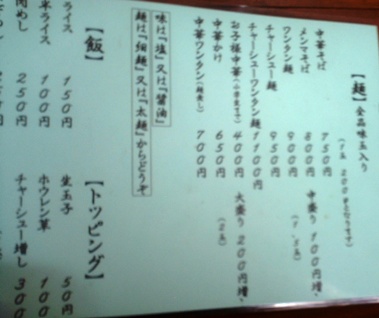 【麺】全品味玉入り
(1玉200gとなります)
中華そば 750円
メンマそば 800円
ワンタン麺 900円
チャーシュー麺 950円
チャーシューワンタン麺 1100円
お子様中華(小学生まで) 400円
中華かけ 650円
中華ワンタン(麺無し) 700円
中盛り 100円増、
(1.5玉)
大盛り 200円増、
(2玉)
味は『塩』又は『醤油』
麺は『細麺』又は『太麺』からどうぞ
【飯】
ライス 150円
半ライス 100円
肉めし 250円
【トッピング】
生玉子 50円
ホウレン草 100
チャーシュー増し 300